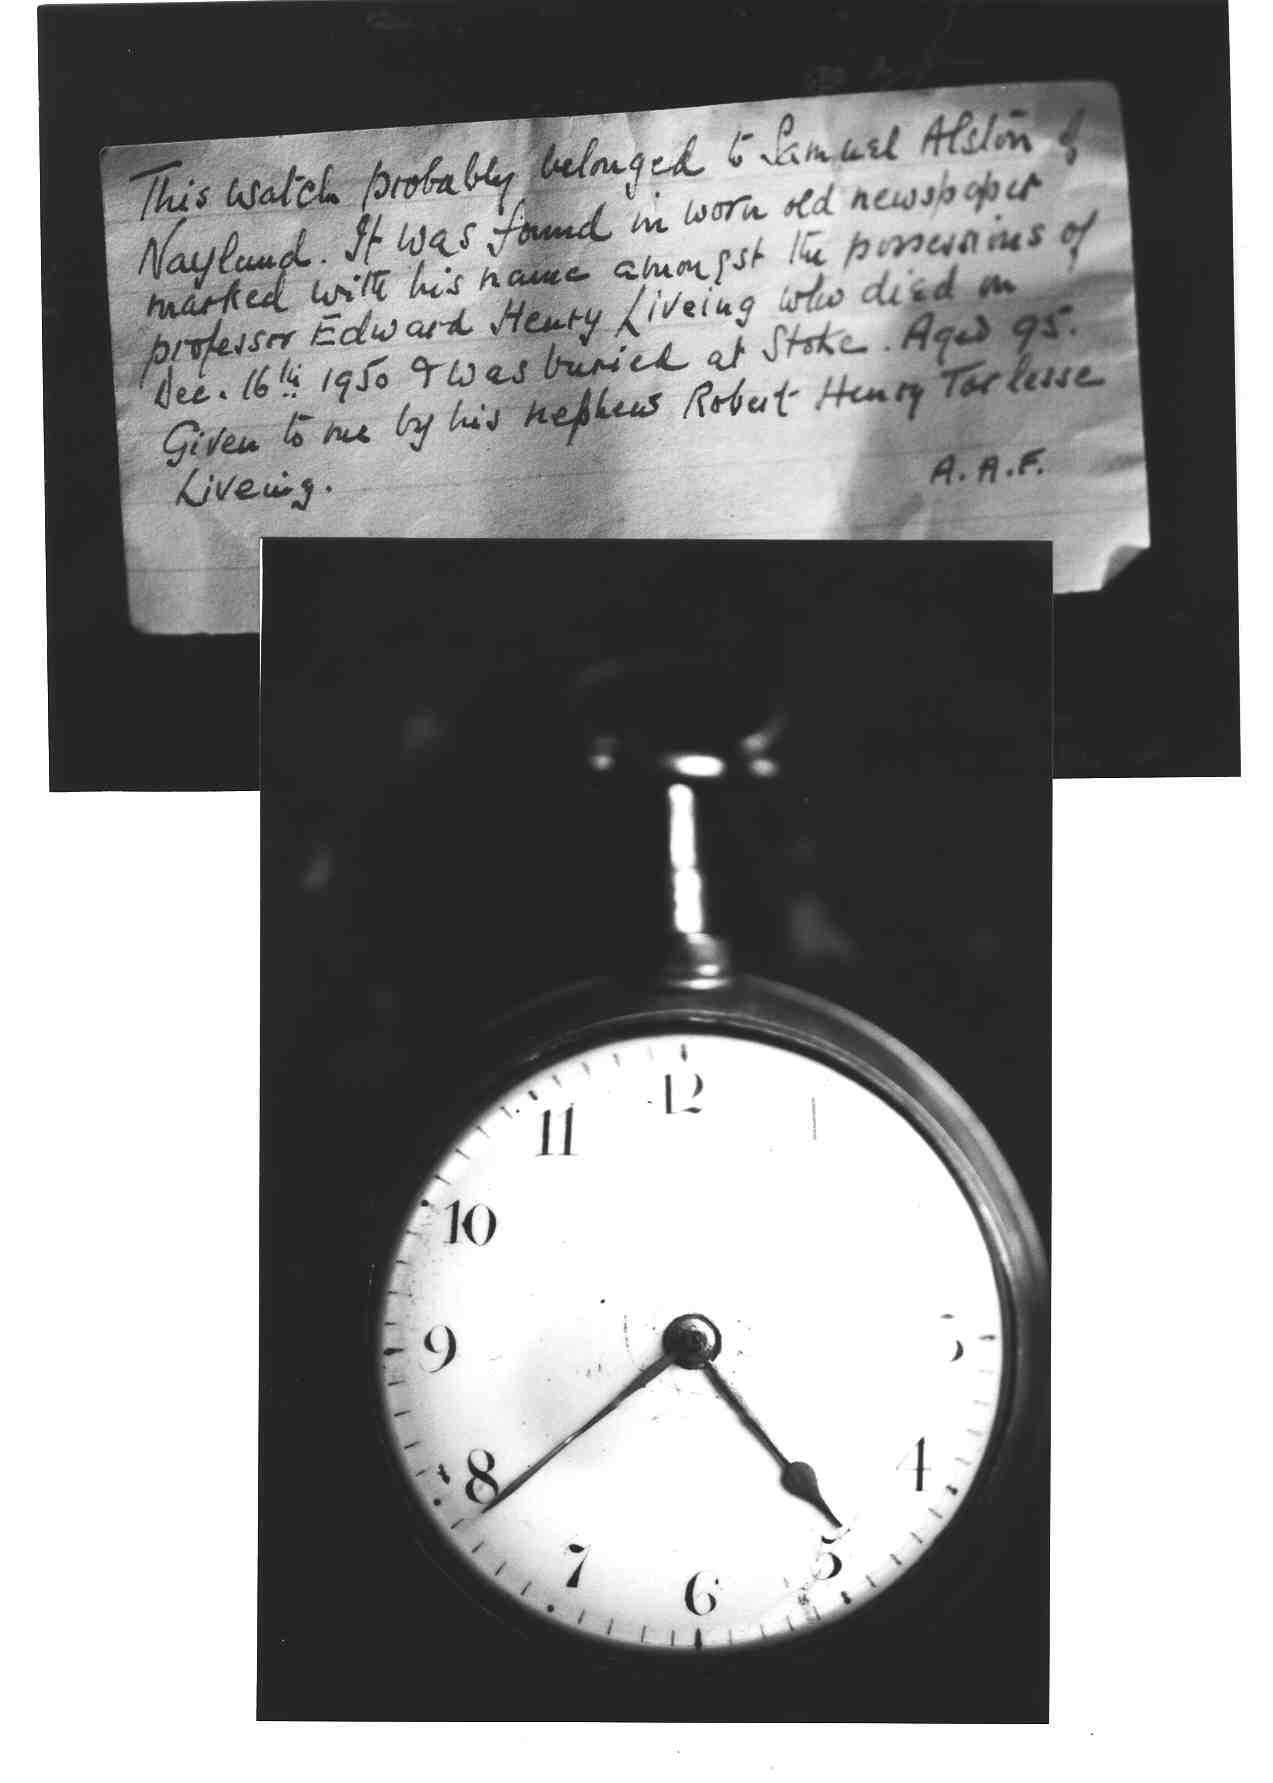 This watch probably belonged to Samuel Alston of
Nayland. It was found in worn old newspaper
marked with his name amongst the possessions of
professor Edward Henry Liveing who died on
Dec. 16th 1950 & was buried at Stoke. Aged 95.
Given to me by his nephew Robert Henry Torlesse
Liveing.
A.A.F.
12
11
1
10
9
8
4
7
5
6